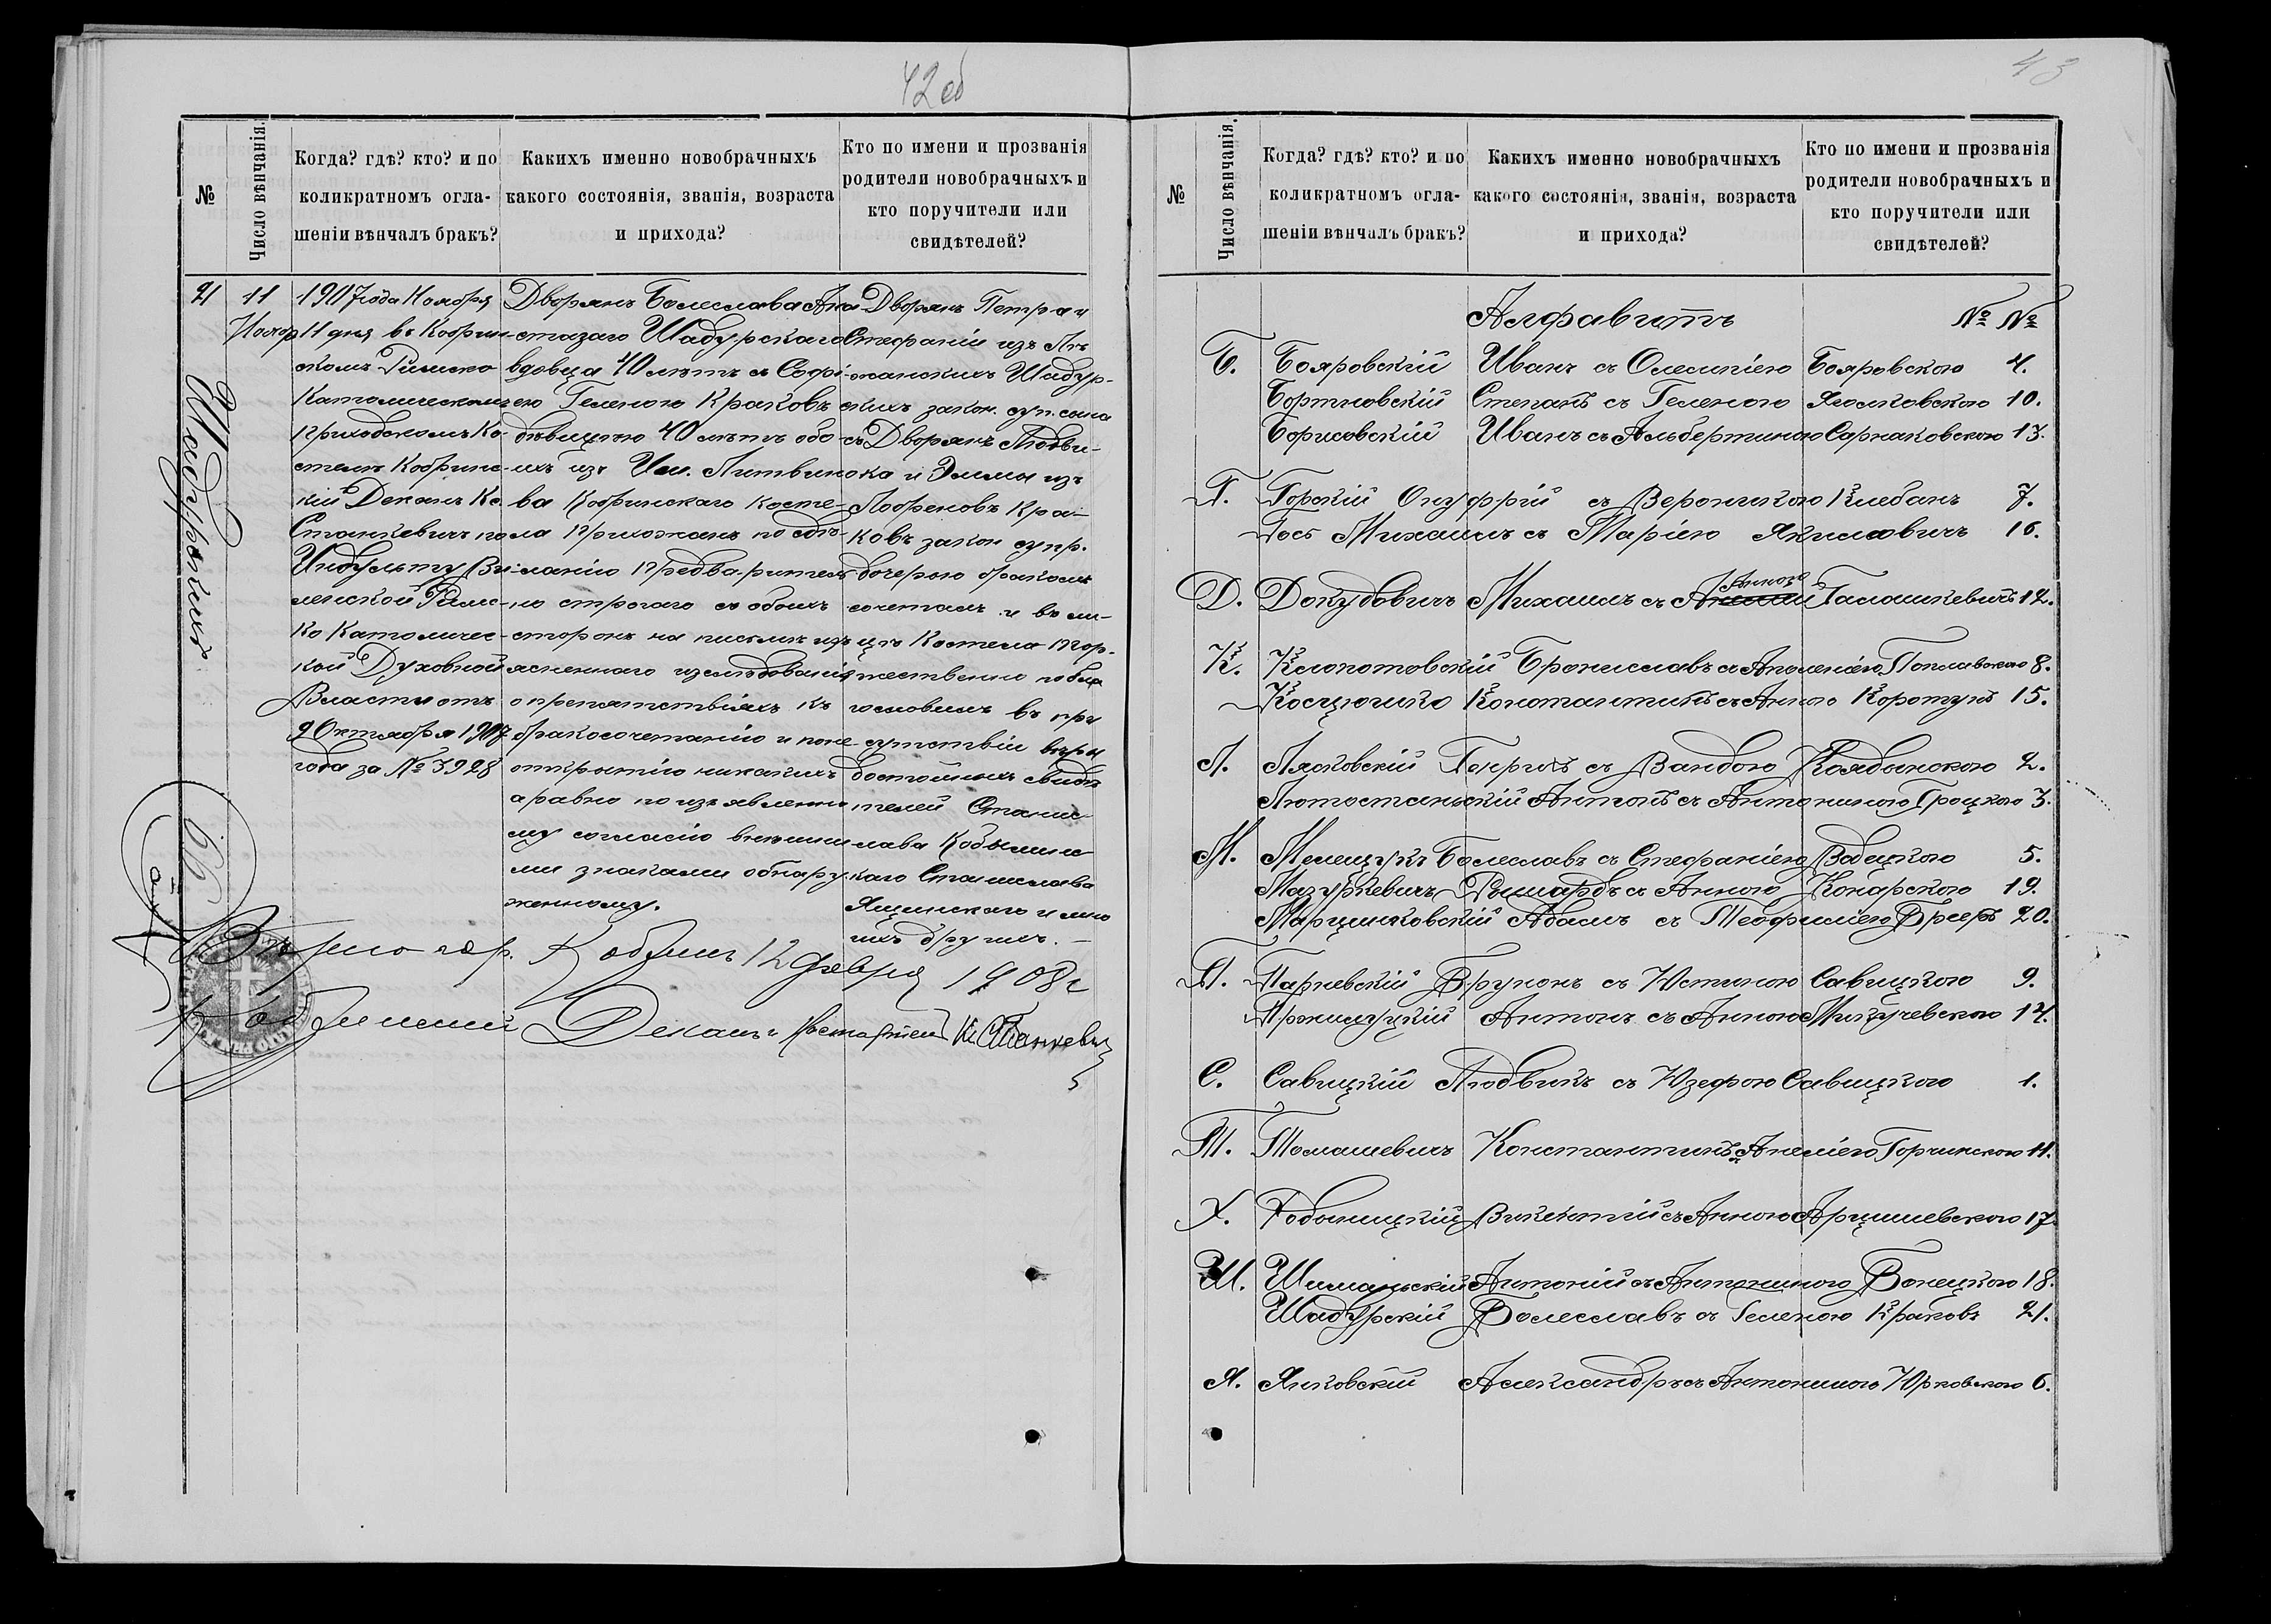 42 об
№
Число вѣнчанія.
Когда? гдѣ? кто? и по
коликратномъ огла-
шеніи вѣнчалъ бракъ?
Какихъ именно новобрачныхъ
какого состоянія, званія, возраста
и прихода?
Кто по имени и прозванія
родители новобрачныхъ и
кто поручители или
свидѣтелей?
21
11
Нояб
Шадурскій
1907 года Ноября
11 дня въ Кобрин-
скомъ Римско
Католическомъ
Приходскомъ Ко-
стелѣ Кобринс-
кій Деканъ Кс.
Станкевичъ по
Индульту Ви-
ленской Римс-
ко Католичес-
кой Духовной
Власти отъ
9 Октября 1907
года за № 3928
Дворянъ Болеслава Ана
стазаго Шадурскаго
вдовца 40 лѣтъ съ Софі-
ею Геленою Краковъ
дѣвицею 40 лѣтъ обо-
ихъ изъ Им. Литвино
ва Кобринскаго Косте-
ла Прихожанъ по сдѣ-
ланію предваритель
но строгаго съ обоихъ
сторонъ на письмѣ изъ
ясненнаго изслѣдованія
о препятствіяхъ къ
бракосочетанію и по не
открытію никакихъ
а равно по изъявленно
му согласію внѣшни
ми знаками обнару
женному.
Дворянъ Петра и
Стефаніи изъ Пе
жанскихъ Шадур-
скихъ закон. суп. сына
съ Дворянъ Людви-
ка и Эмміи изъ
Лофреновъ Кра-
ковъ закон супр.
дочерью бракомъ
сочеталъ и въ ли-
цѣ Костела Тор-
жественно побла
гословилъ въ при
сутствіи вѣры
достойныхъ свидѣ
телей Станис-
лава Кобылинс
каго Станислава
Ящинскаго и мно
ихъ другихъ. —
Вѣрно гор. Кобринъ 12 Февраля 1908 г
Кобринскій Деканъ Настоятель Кс. Станкевич
43
№
Число вѣнчанія.
Когда? гдѣ? кто? и по
коликратномъ огла-
шеніи вѣнчалъ бракъ?
Какихъ именно новобрачныхъ
какого состоянія, званія, возраста
и прихода?
Кто по имени и прозванія
родители новобрачныхъ и
кто поручители или
свидѣтелей?
Алфавитъ № №
Б. Бояровскій Иванъ съ Олимпіею Бояровскою 4.
Бортновскій Степанъ съ Геленою Ясюковскою 10.
Борисовскій Иванъ съ Альбертиною Сарнаковскою 13.
Г. Горскій Онуфрій съ Вероникою Клебанъ 7.
Гось Михаилъ съ Маріею Якимовичъ 16.
Д. Докудовичъ Михаилъ съ Анною Галошкевичъ 12.
К. Клопотовскій Брониславъ съ Аполеніею Поплавскою 8.
Косцюшко Константинъ съ Анною Коротунъ 15.
Л. Лясковскій Генрихъ съ Вандою Колдынскою 2.
Лютостаньскій Антонъ съ Антониною Троцкою 3.
М. Мелещукъ Болеславъ съ Стефаніею Водецкою 5.
Мазуркевичъ Рышардъ съ Анною Конарскою 19.
Марцинковскій Адамъ съ Теофиліею Бреръ 20.
П. Парневскій Брунонъ съ Юстиною Савицкою 9.
Пржицуцкій Антонъ съ Анною Микучевскою 14.
С. Савицкій Людвикъ съ Юзефою Савицкою 1.
Т. Томашевичъ Константинъ съ Анеліею Горчинскою 11.
Х. Ходыницкій Викентій съ Анною Арцишевскою 17.
Ш. Шиманьскій Антоній съ Антониною Вонецкою 18.
Шадурскій Болеславъ съ Геленою Краковъ 21.
Я. Янковскій Александръ съ Антониною Юрковскою 6.